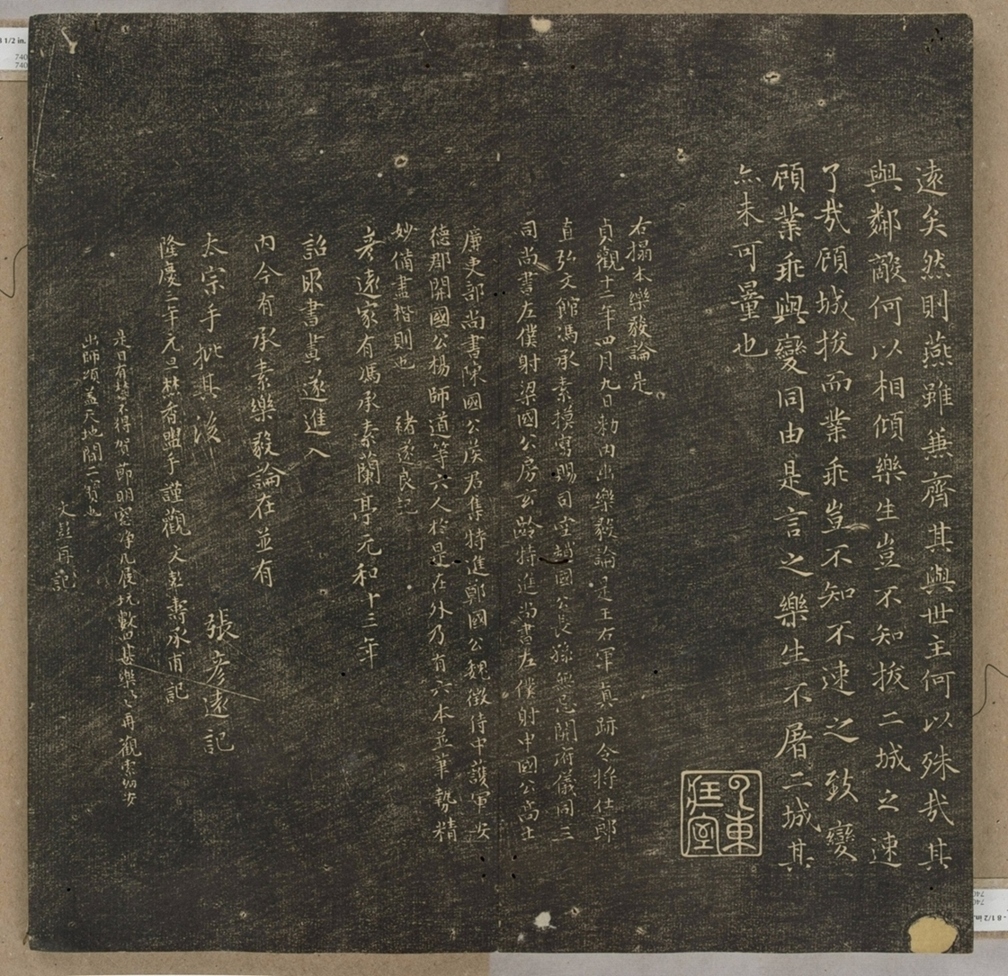 遠矣然則燕雖兼齊其與世主何以殊哉其
與鄰敵何以相傾樂生豈不知拔二城之速
了哉顧城拔而業乖豈不知不速之致變
顧業乖與變同由是言之樂生不屠二城其
亦未可量也
右搨本樂毅論是
貞觀十二年四月九日勅內出樂毅論是王右軍真跡令將仕郎
直弘文館馮承素摸寫賜司空趙國公長孫無忌開府儀同三
司尚書左僕射梁國公房玄齡特進尚書左僕射申國公高士
廉吏部尚書陳國公侯君集特進鄭國公魏徵侍中護軍安
德郡開國公楊師道等六人於是在外乃有六本並筆勢精
妙備盡楷則也 褚遂良記
彥遠家有馮承素蘭亭元和十三年
詔取書畫遂進入
內今有承素樂毅論在並有
太宗手批其後 張彥遠記
隆慶二年元旦 盥手謹觀文彭壽承甫記
是日有 不得賀節明窓 展玩數四甚樂也再觀
出師頌 天地間二寶也 文彭再記